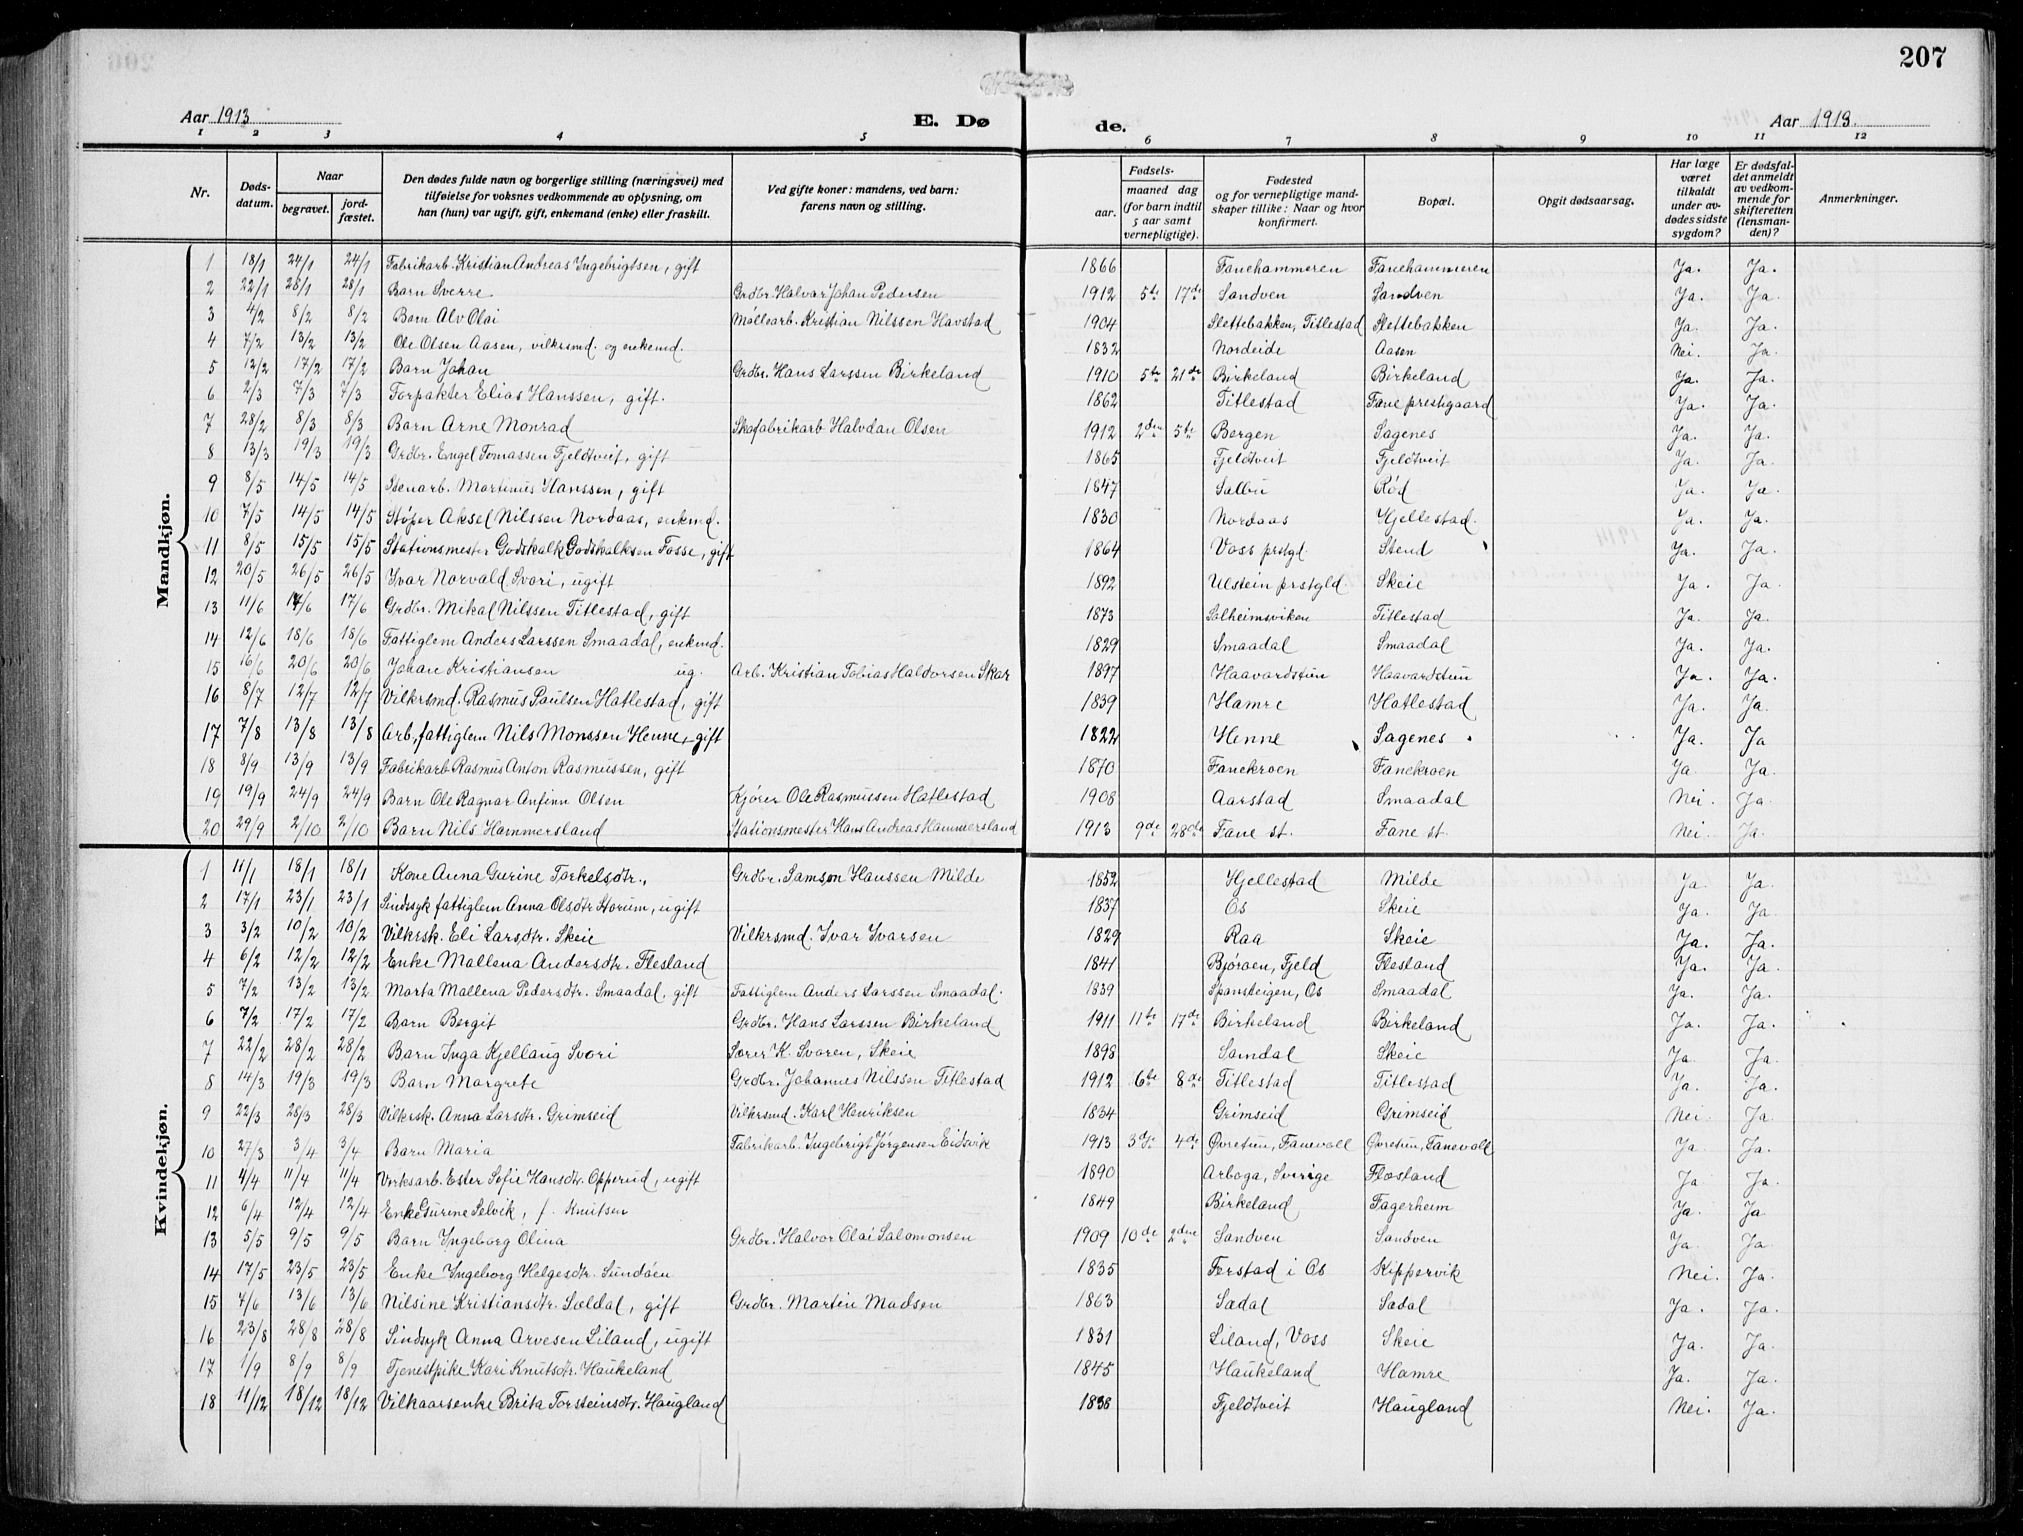 207
Aar 1913 E. Dø de. Aar 1913.
1 2 3 4 5 6 7 8 9 10 11 12
Nr. Døds-datum. Naar begravet. jord-fæstet. Den dødes fulde navn og borgerlige stilling (næringsvei) med tilføielse for voksnes vedkommende av oplysning, om han (hun) var ugift, gift, enkemand (enke) eller fraskilt. Ved gifte koner: mandens, ved barn: farens navn og stilling. Fødsels- aar. maaned dag (for barn indtil 5 aar samt vernepligtige). Fødested og for vernepligtige mand-skaper tillike: Naar og hvor konfirmert. Bopæl. Opgit dødsaarsag. Har læge været tilkaldt under av-dødes sidste sygdom? Er dødsfal-det anmeldt av vedkom-mende for skifteretten (lensman-den)? Anmerkninger.
Mandkjøn.
1 18/1 24/1 24/1 Fabrikarb. Kristian Andreas Ingebrigtsen, gift 1866 Fanehammeren Fanehammeren Ja. Ja.
2 22/1 28/1 28/1 Barn Sverre Grdbr. Halvar Johan Pedersen 1912 5te 17de Sandven Sandven Ja. Ja.
3 4/2 8/2 8/2 Barn Alv Olai Møllearb. Kristian Nilssen Havstad 1904 Slettebakken, Titlestad Slettebakken Ja. Ja.
4 7/2 13/2 13/2 Ole Olsen Aasen, vilkrsmd. og enkemd. 1832 Nordeide Aasen Nei. Ja.
5 12/2 17/2 17/2 Barn Johan Grdbr. Hans Larssen Birkeland 1910 5te 21de Birkeland Birkeland Ja. Ja.
6 2/3 7/3 7/3 Forpakter Elias Hanssen, gift. 1862 Titlestad Fane prestigaard Ja. Ja.
7 28/2 8/3 8/3 Barn Arne Monrad Skofabrikarb Halvdan Olsen 1912 2den 5te Bergen Sagenes Ja. Ja.
8 13/3 19/3 19/3 Grdbr. Engel Tomassen Fjeldtveit, gift 1865 Fjeldtveit Fjeldtveit Ja. Ja.
9 8/5 14/5 14/5 Stenarb. Martinus Hanssen, gift 1847 Salbu Rød Ja. Ja.
10 7/5 14/5 14/5 Støper Aksel Nilssen Nordaas, enkmd. 1830 Nordaas Hjellestad. Ja. Ja.
11 8/5 15/5 15/5 Stationsmester Godskalk Godskalksen Fosse, gift 1864 Voss prstgd. Stend Ja. Ja.
12 20/5 26/5 26/5 Ivar Norvald Svori, ugift 1892 Ulstein prstgld Skeie Ja. Ja.
13 11/6 17/6 17/6 Grdbr. Mikal Nilssen Titlestad, gift 1873 Solheimsviken Titlestad Ja. Ja.
14 12/6 18/6 18/6 Fattiglem Anders Larssen Smaadal, enkmd. 1829 Smaadal Smaadal Ja. Ja.
15 16/6 20/6 20/6 Johan Kristiansen ug. Arb. Kristian Tobias Haldorsen Skar 1897 Haavardstun Haavardstun Ja. Ja.
16 8/7 12/7 12/7 Vilkrsmd. Rasmus Paulsen Hatlestad, gift 1839 Hamre Hatlestad Ja. Ja.
17 7/8 13/8 13/8 Arb, fattiglem Nils Monssen Henne, gift 1822 Henne Sagenes Ja. Ja
18 8/9 13/9 13/9 Fabrikarb Rasmus Anton Rasmussen, gift 1870 Fanekroen Fanekroen Ja. Ja.
19 19/9 24/9 24/9 Barn Ole Ragnar Anfinn Olsen Kjører Ole Rasmussen Hatlestad 1908 Aarstad Smaadal Nei. Ja.
20 29/9 2/10 2/10 Barn Nils Hammersland Stationsmester Hans Andreas Hammersland 1913 9de 28de Fane st. Fane st. Nei. Ja.
Kvindekjøn.
1 11/1 18/1 18/1 Kone Anna Gurine Torkelsdtr., Grdbr. Samson Hanssen Milde 1852 Hjellestad Milde Ja. Ja.
2 17/1 23/1 23/1 Sindssyk fattiglem Anna Olsdtr Storum, ugift 1837 Os Skeie Ja. Ja.
3 3/2 10/2 10/2 Vilkrsk. Eli Larsdtr. Skeie Vilkrsmd. Ivar Ivarsen 1829 Raa Skeie Ja. Ja.
4 6/2 12/2 12/2 Enke Mallena Andersdtr. Flesland 1841 Bjøroen, Fjeld Flesland Ja. Ja.
5 7/2 13/2 13/2 Marta Mallena Pedersdtr. Smaadal, gift Fattiglem Anders Larssen Smaadal. 1839 Spansteigen, Os Smaadal Ja. Ja.
6 7/2 17/2 17/2 Barn Bergit Grdbr. Hans Larssen Birkeland 1911 11te 17de Birkeland Birkeland Ja. Ja.
7 22/2 28/2 28/2 Barn Inga Kjellaug Svori Lærer K. Svoren, Skeie 1898 Samdal Skeie Ja. Ja.
8 14/3 19/3 19/3 Barn Margrete Grdbr. Johannes Nilssen Titlestad 1912 6te 8de Titlestad Titlestad Ja. Ja.
9 22/3 28/3 28/3 Vilkrsk. Anna Larsdtr. Grimseid Vilkrsmd. Karl Henriksen 1834 Grimseid Grimseid Nei. Ja.
10 27/3 3/4 3/4 Barn Maria Fabrikarb. Ingebrigt Jørgensen Eidsvik 1913 3de 4de Øvretun, Fanevoll Øvretun, Fanevoll Ja. Ja.
11 4/4 11/4 11/4 Verksarb. Ester Sofie Hansdtr. Opperud, ugift 1890 Arboga, Sverige Flesland Ja Ja.
12 6/4 12/4 12/4 Enke Gurine Selvik, f. Knutsen 1849 Birkeland Fagerheim Ja. Ja.
13 5/5 9/5 9/5 Barn Ingeborg Olina Grdbr. Halvor Olai Salomonsen 1909 10de 2den Sandven Sandven Ja. Ja.
14 17/5 23/5 23/5 Enke Ingeborg Helgesdtr. Sundøen 1835 Ferstad i Os Kippervik Nei. Ja.
15 4/6 13/6 13/6 Nilsine Kristiansdtr. Sældal, gift Grdbr. Martin Madsen 1863 Sædal Sædal Ja. Ja.
16 23/8 28/8 28/8 Sindsyk Anna Arvesen Liland, ugift 1831 Liland, Voss Skeie Ja. Ja.
17 1/9 8/9 8/9 Tjenestpike Kari Knutsdtr. Haukeland 1845 Haukeland Hamre Ja. Ja.
18 11/12 18/12 18/12 Vilkaarsenke Brita Torsteinsdtr. Haugland 1838 Fjeldtveit Haugland Nei. Ja.